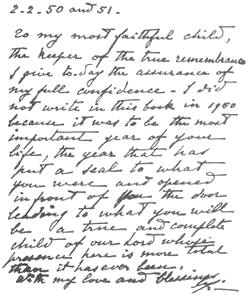 2-2-50 and 51-
To my most faithful child,
the keeper of the true remembrance
I give to-day the assurance of
my full confidence - I did
not write in this book in 1950
because it was to be the most
important year of your
life, the year that has
put a seal to what
you were and opened
in front of you the door
leading to what you will
be a true and complete
child of our Lord whose
presence here is more total
than it has ever been.
With my love and blessings